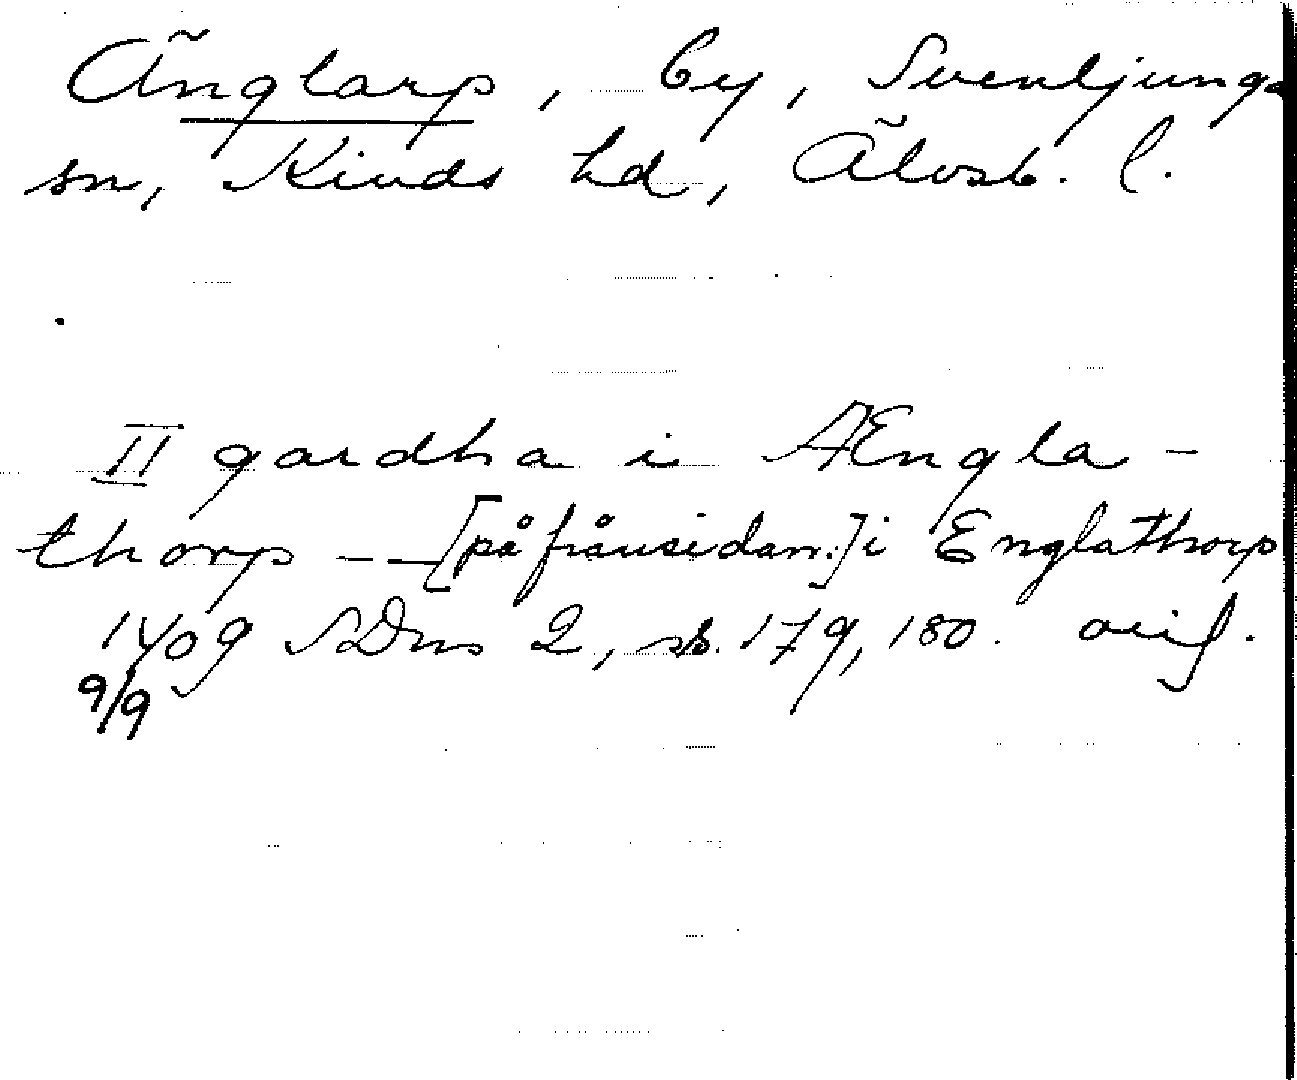 Änglarp, by, Svenljunga
sn, Kinds hd, Älvsb. l.
II gardha i Ængla-
thorp -- [på frånsidan:] i Englathorp
1409 SDns 2, sb. 179, 180. orig.
9/9